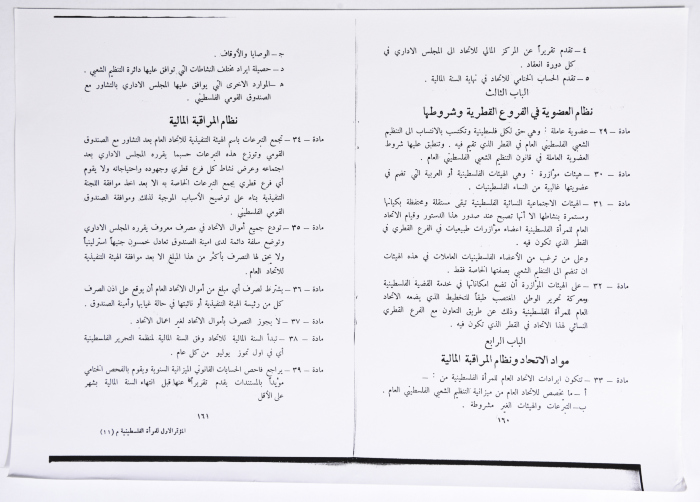 ٤ — تقدم تقريراً عن المركز المالي للاتحاد الى المجلس الاداري في
كل دورة انعقاد .
٥ — تقدم الحساب الختامي للاتحاد في نهاية السنة المالية .
الباب الثالث
نظام العضوية في الفروع القطرية وشروطها
مادة — ٢٩ — عضوية عاملة : وهي حق لكل فلسطينية وتكتسب بالانتساب الى التنظيم
الشعبي الفلسطيني العام في القطر الذي تقيم فيه . وتنطبق عليها شروط
العضوية العاملة في قانون التنظيم الشعبي العام .
مادة — ٣٠ — هيئات مؤازرة : وهي الهيئات الفلسطينية أو العربية التي تضم في
عضويتها غالبية من النساء الفلسطينيات .
مادة — ٣١ — الهيئات الاجتماعية النسائية الفلسطينية تبقى مستقلة ومحتفظة بكيانها
ومستمرة بنشاطها الا أنها تصبح عند صدور هذا الدستور وقيام الاتحاد
العام للمرأة الفلسطينية اعضاء مؤازرات طبيعيات في الفرع القطري في
القطر الذي تكون فيه .
وعلى من ترغب من الأعضاء الفلسطينيات العاملات في هذه الهيئات
ان تنضم الى التنظيم الشعبي بصفتها الخاصة فقط .
مادة — ٣٢ — على الهيئات المؤازرة أن تضع امكاناتها في خدمة القضية الفلسطينية
ومعركة تحرير الوطن المغتصب طبقاً للتخطيط الذي يضعه الاتحاد
العام للمرأة الفلسطينية وذلك عن طريق التعاون مع الفرع القطري
النسائي لهذا الاتحاد في القطر الذي تكون فيه .
الباب الرابع
مواد الاتحاد ونظام المراقبة المالية
مادة — ٣٣ — تتكون ايرادات الاتحاد العام للمرأة الفلسطينية من :—
أ — ما يخصص للاتحاد العام من ميزانية التنظيم الشعبي الفلسطيني العام .
ب — التبرعات والهبات الغير مشروطة .
١٦٠
ج — الوصايا والأوقاف .
د — حصيلة ايراد مختلف النشاطات التي توافق عليها دائرة التنظيم الشعبي .
ه — الموارد الاخرى التي يوافق عليها المجلس الاداري بالتشاور مع
الصندوق القومي الفلسطيني .
نظام المراقبة المالية
مادة — ٣٤ — تجمع التبرعات باسم الهيئة التنفيذية للاتحاد العام بعد التشاور مع الصندوق
القومي وتوزع هذه التبرعات حسبما يقرره المجلس الاداري بعد
اجتماعه وعرض نشاط كل فرع قطري وجهوده واحتياجاته ولا يقوم
أي فرع قطري بجمع التبرعات الخاصة به الا بعد اخذ موافقة اللجنة
التنفيذية بناء على توضيح الأسباب الموجبة لذلك وموافقة الصندوق
القومي الفلسطيني .
مادة — ٣٥ — تودع جميع أموال الاتحاد في مصرف معروف يقرره المجلس الاداري
وتوضع سلفة دائمة لدى امينة الصندوق تعادل خمسون جنيهاً استرلينياً
ولا يحق لها التصرف بأكثر من هذا المبلغ الا بعد موافقة الهيئة التنفيذية
للاتحاد العام .
مادة — ٣٦ — يشترط لصرف أي مبلغ من أموال الاتحاد العام أن يوقع على اذن الصرف
كل من رئيسة الهيئة التنفيذية أو نائبتها في حالة غيابها وأمينة الصندوق .
مادة — ٣٧ — لا يجوز التصرف بأموال الاتحاد لغير اعمال الاتحاد .
مادة — ٣٨ — تبدأ السنة المالية للاتحاد وفق السنة المالية لمنظمة التحرير الفلسطينية
أي في اول تموز يوليو من كل عام .
مادة — ٣٩ — يراجع فاحص الحسابات القانوني الميزانية السنوية ويقوم بالفحص الختامي
مؤيداً بالمستندات يقدم تقريراً عنها قبل انتهاء السنة المالية بشهر
على الأقل
١٦١
المؤتمر الاول للمرأة الفلسطينية م (١١)